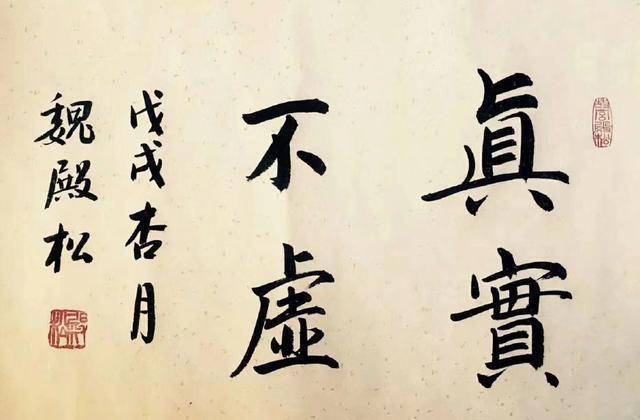 眞實
不虛
戊戌杏月
魏殿松